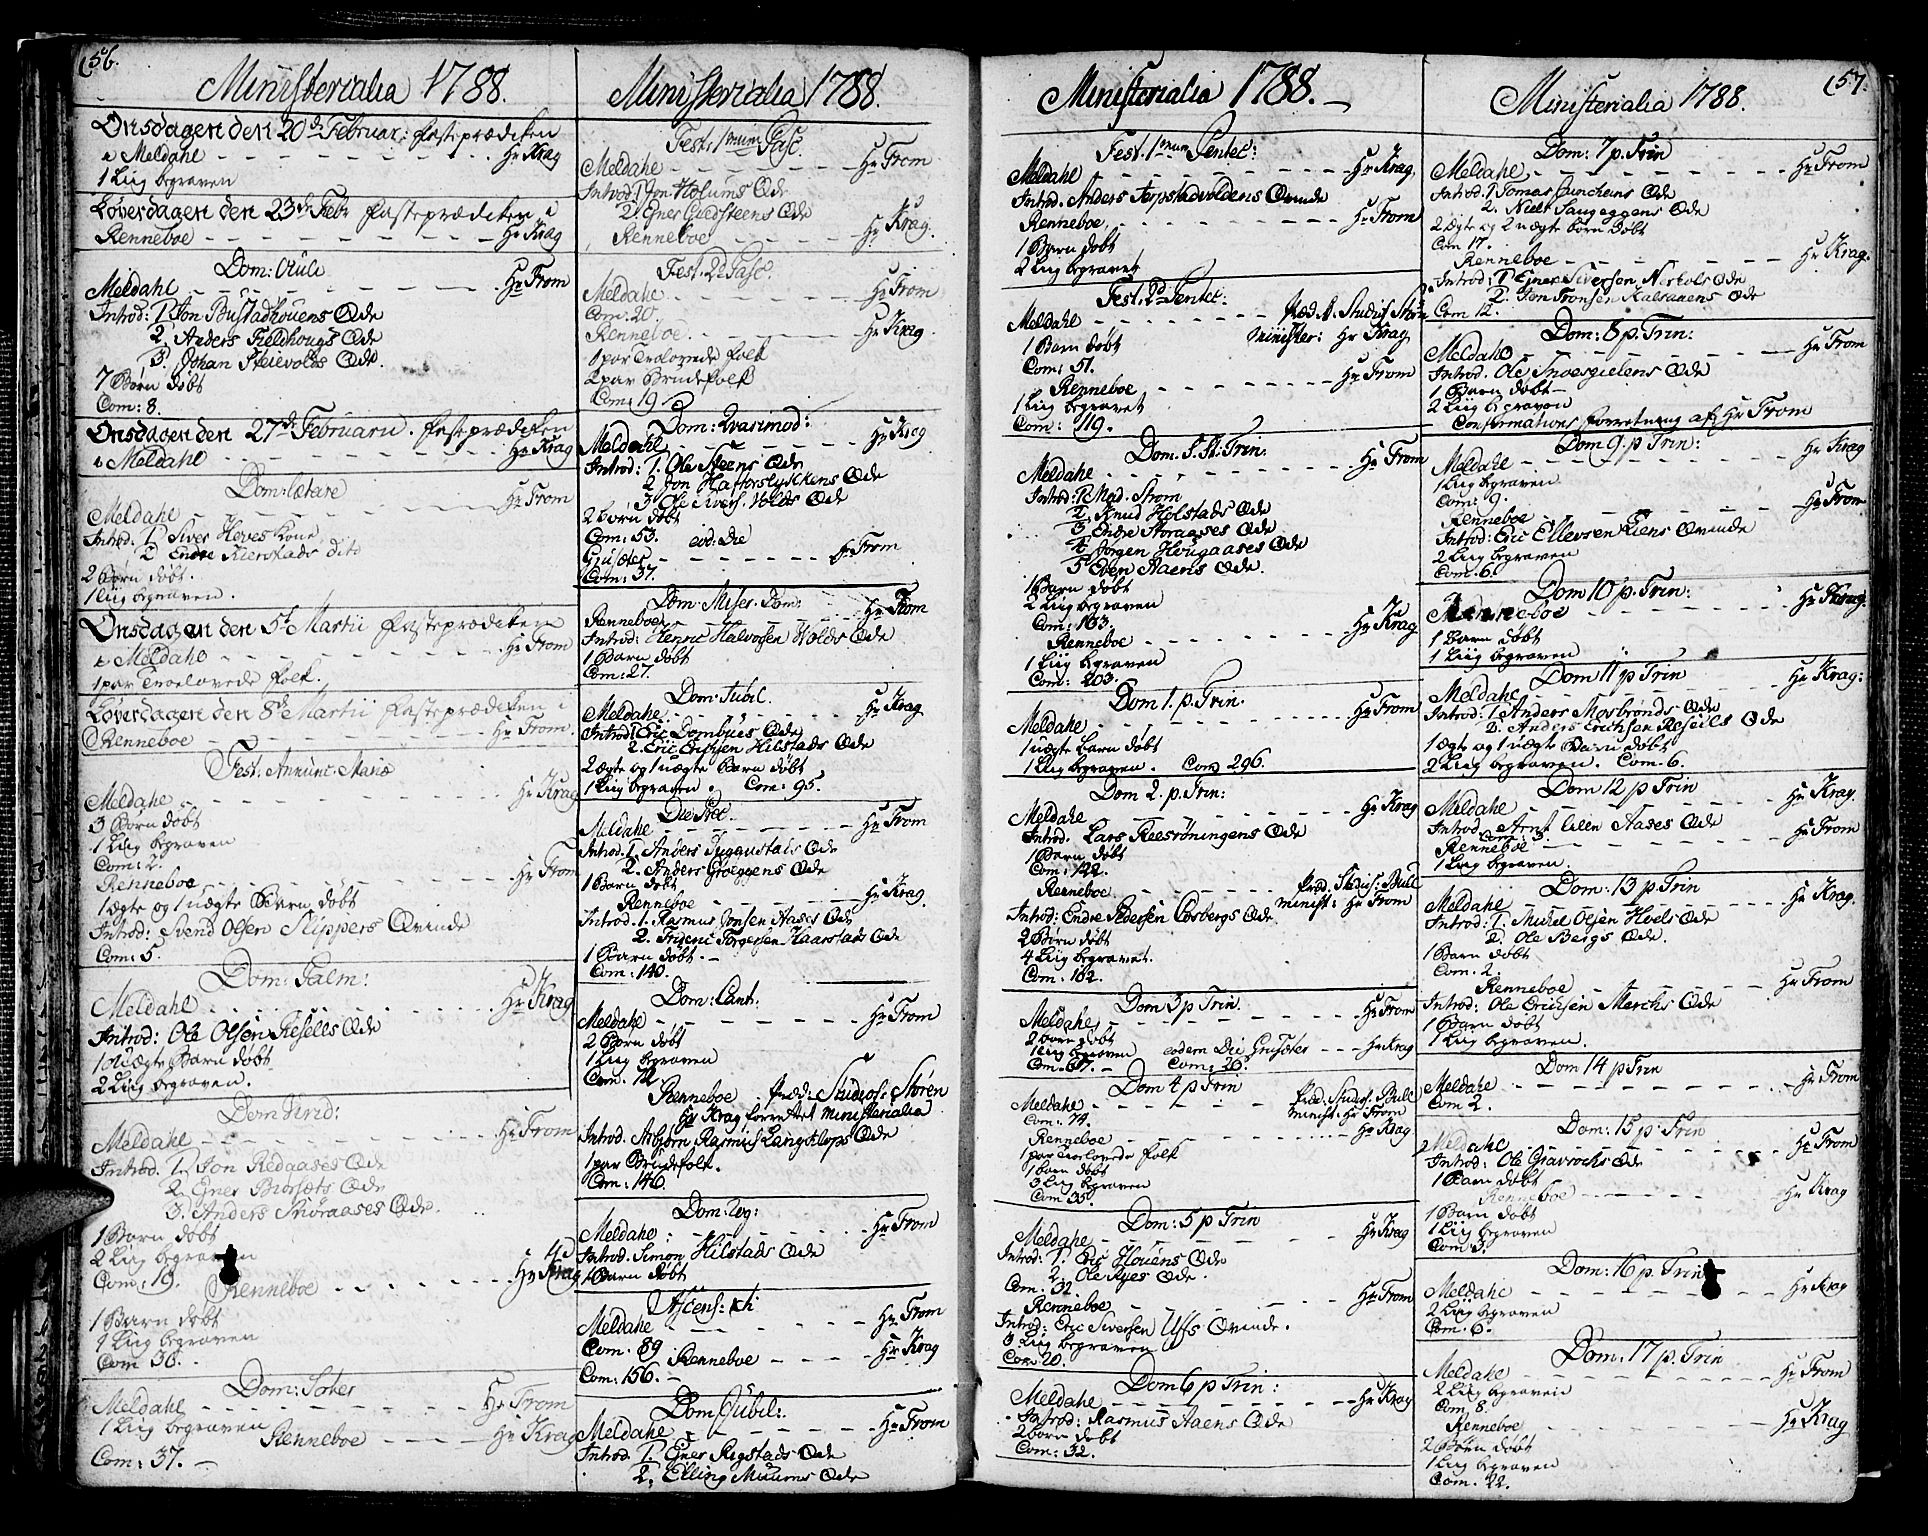 156.
Ministerialia 1788.
Onsdagen den 20de Februar: fasteprædiken
i Meldahl Hr Krag
1 Liig begraven
Løverdagen den 23de Febr fasteprædiken i
Renneboe Hr Krag
Dom: Oculi
Meldahl Hr From
Introd: 1. Jon Bustadhouens Qde
2. Anders Fieldhougs Qde
3. Johan Steievolds Qde.
7 Børn døbt
Com: 8.
Onsdagen den 27de Februarii. fasteprædiken
i Meldahl Hr Krag
Dom: Lætare
Meldahl Hr From
Introd. 1. Siver Hoves Kone
2. Endre Kierstads dito
2 Børn døbt.
1 Liig begraven.
Onsdagen den 5te Martii fasteprædiken
i Meldahl Hr From
1 par Troelovede folk.
Løverdagen den 8de Martii fasteprædiken i
Renneboe Hr From
Fest. Annunc. Mariæ
Meldahl Hr Krag
3 Børn døbt
1 Liig begraven
Com: 2.
Renneboe Hr From
1 ægte og 1 uægte Barn døbt
Introd: Svend Olsen Skippers Qvinde
Com: 5.
Dom: Palm:
Meldahl Hr Krag
Introd: Ole Olsen Resells Qde
1 Uægte Barn døbt
2 Liig begraven.
Dom: Virid:
Meldahl Hr From
Introd. 1. Jon Redaases Qde
2. Eyner Qde
3. Anders Snøraases Qde.
1 Barn døbt
2 Liig begraven
Com: 19. Renneboe Hr Krag
1 Barn døbt
1 Liig begraven
Com 30.
Dom: Stiler
Meldahl Hr From
1 Liig begraven
Renneboe Hr Krag
Com: 37.
Ministerialia 1788.
Fest. 1mum Pasc.
Meldahl Hr From
Introd: 1 Jon Holums Qde
2. Ener Guldsteens Qde
Renneboe Hr Krag.
Fest. 2d Pasc.
Meldahl Hr From
Com: 20.
Renneboe Hr Krag
1 par Trolovede folk
2 par Brudefolk
Com: 19
Dom: Qvasimod:
Meldahl Hr Krag
Introd: 1. Ole Steens Qde
2 Jon Hafforslykkens Qde
3 Ole Sivers. Volds Qde
2 Børn døbt
Com: 53. eod: Die
Grusæter Hr From
Com: 37.
Dom: Miser. Dom:
Renneboe Hr From
Introd: Henric Halvorsen Volds Qde
1 Barn døbt
Com: 27.
Dom: Jubil.
Meldahl Hr Krag
Introd: 1 Eric Dombues Qde
2. Eric Erichsen Hilstads Qde
2 ægte og 1 uægte Barn døbt
1 Liig begraven. Com: 95.
Die Prec.
Meldahl Hr From
Introd. 1. Anders Qde
2. Anders Gregoens Qde
1 Barn døbt
Renneboe Hr Krag
Introd: 1. Rasmus Jonsen Aases Qde
2. Torgersen Haarstads Qde
1 Barn døbt.
Com: 140.
Dom: Cant.
Meldahl Hr From
2 Børn døbt
1 Liig begraven
Com: 12.
Renneboe præd: Studios: Støren
Hr Krag forrettet ministerialia
Introd. Asbjørn Rasmus Langklops Qde
1 par Brudefolk.
Com: 146.
Dom: Rog:
Meldahl Hr From
Introd: Simon Hilstads Qde
1 Barn døbt
Ascens: Chr
Meldahl Hr From
Com: 89
Renneboe Hr Krag
Com: 156.
Dom Jubil:
Meldahl Hr From
Introd 1. Ener Rigstads Qde
2. Elling Muurns Qde
Ministerialia 1788.
Fest. 1mum Pentec:
Meldahl Hr Krag
Introd: Anders Torpstadvoldens Qvinde
Renneboe Hr From
1 Barn døbt
2 Liig begravet
Fest. 2d Pentec:
Meldahl Præd. N. Studios Støren
1 Barn døbt Minister: Hr Krag
Com: 51.
Renneboe Hr From
1 Liig begravet
Com: 119.
Dom. S. S. Trin.
Meldahl Hr From
Introd: 1. Mad. Strøm
2. Knud Holstads Qde
3 Endre Storaases Qde
4 Jørgen Hougaases Qde
5 Even Aaens Qde.
1 Barn døbt
2 Liig begraven
Com: 163.
Renneboe Hr Krag
1 Liig begraven
Com: 203.
Dom 1. p. Trin.
Meldahl Hr From
1 uægte Barn døbt
1 Liig begraven. Com 296.
Dom 2. p. Trin:
Meldahl Hr Krag
Introd. Lars Reesrøningens Qde
1 Barn døbt
Com: 122.
Renneboe Præd: Studios: Bull
minist: Hr From
Introd: Endre Pedersen Qde
2 Børn døbt
4 Liig begravet.
Com: 162.
Dom 3 p Trin.
Meldahl Hr From
2 børn døbt
1 Liig begraven eodem Die Grusæter Hr Krag
Com: 67. Com: 26.
Dom 4 p Trin
Meldahl Præd: Studios: Bull
minist: Hr From
Com: 79.
Renneboe Hr Krag
1 par Troelovede folk
1 barn døbt
3 Liig begraven
Com 35.
Dom: 5 p Trin
Meldahl Hr Krag
Introd: 1. Eric Houens Qde
2. Ole Ryes Qde.
Com: 32.
Renneboe Hr From
Introd: Eric Siversen Ufs Qvinde.
3 Liig begraven
Com 20.
Dom 6 p Trin:
Meldahl Hr Krag
Introd: Rasmus Aaens Qde
2 børn døbt
Com: 32.
157.
Ministerialia 1788.
Dom: 7 p. Trin
Meldahl Hr From
Introd: 1 Tomas Qde
2. Niels Saugeggens Qde
2 ægte og 2 uægte børn døbt
Com 17.
Renneboe Hr Krag.
Introd: 1 Ejner Siversen Qde
2. Jon Tronsen Qde
Com 12.
Dom: 8 p. Trin:
Meldahl Hr From
Introd. Ole Snoesgielens Qde
1 Barn døbt
2 Liig begraven
Confirmations forretning af Hr From
Dom 9. p Trin:
Meldahl Hr Krag
1 Liig begraven
Com: 9.
Renneboe Hr From
Introd: Eric Ellevsen Qvinde
2 Liig begraven
Com. 6.
Dom 10 p. Trin:
Renneboe Hr Krag.
1 Barn døbt
1 Liig begraven
Dom 11 p Trin
Meldahl Hr Krag:
Introd: 1. Anders Mosbrønds Qde
2. Anders Erichsen Resells Qde
1 ægte og 1 uægte Barn døbt
2 Liig begraven. Com. 6.
Dom 12 p Trin
Meldahl Hr Krag.
Introd. Arnt lillen Aases Qde
Renneboe Hr From
1 Liig begraven.
Dom: 13 p. Trin
Meldahl Hr Krag
Introd: 1. Michel Olsen Hoels Qde
2. Ole Bergs Qde.
1 Barn døbt
Com. 2.
Renneboe Hr From
Introd: Ole Ericksen Mærchs Qde
1 Barn døbt
1 Liig begraven.
Dom 14 p Trin
Meldahl Hr From
Com 2.
Dom: 15 p: Trin
Meldahl Hr From
Introd: Ole Gravrochs Qde
1 Barn døbt
Renneboe Hr Krag
1 Barn døbt
1 Liig begraven
Com 3.
Dom: 16 p. Trin
Meldahl Hr Krag
2 Liig begraven
Com. 6.
Dom: 17 p. Trin
Meldahl Hr From
2 Liig begraven
Com. 8.
Renneboe Hr Krag
2 Børn døbt
1 Liig begraven
Com. 22.